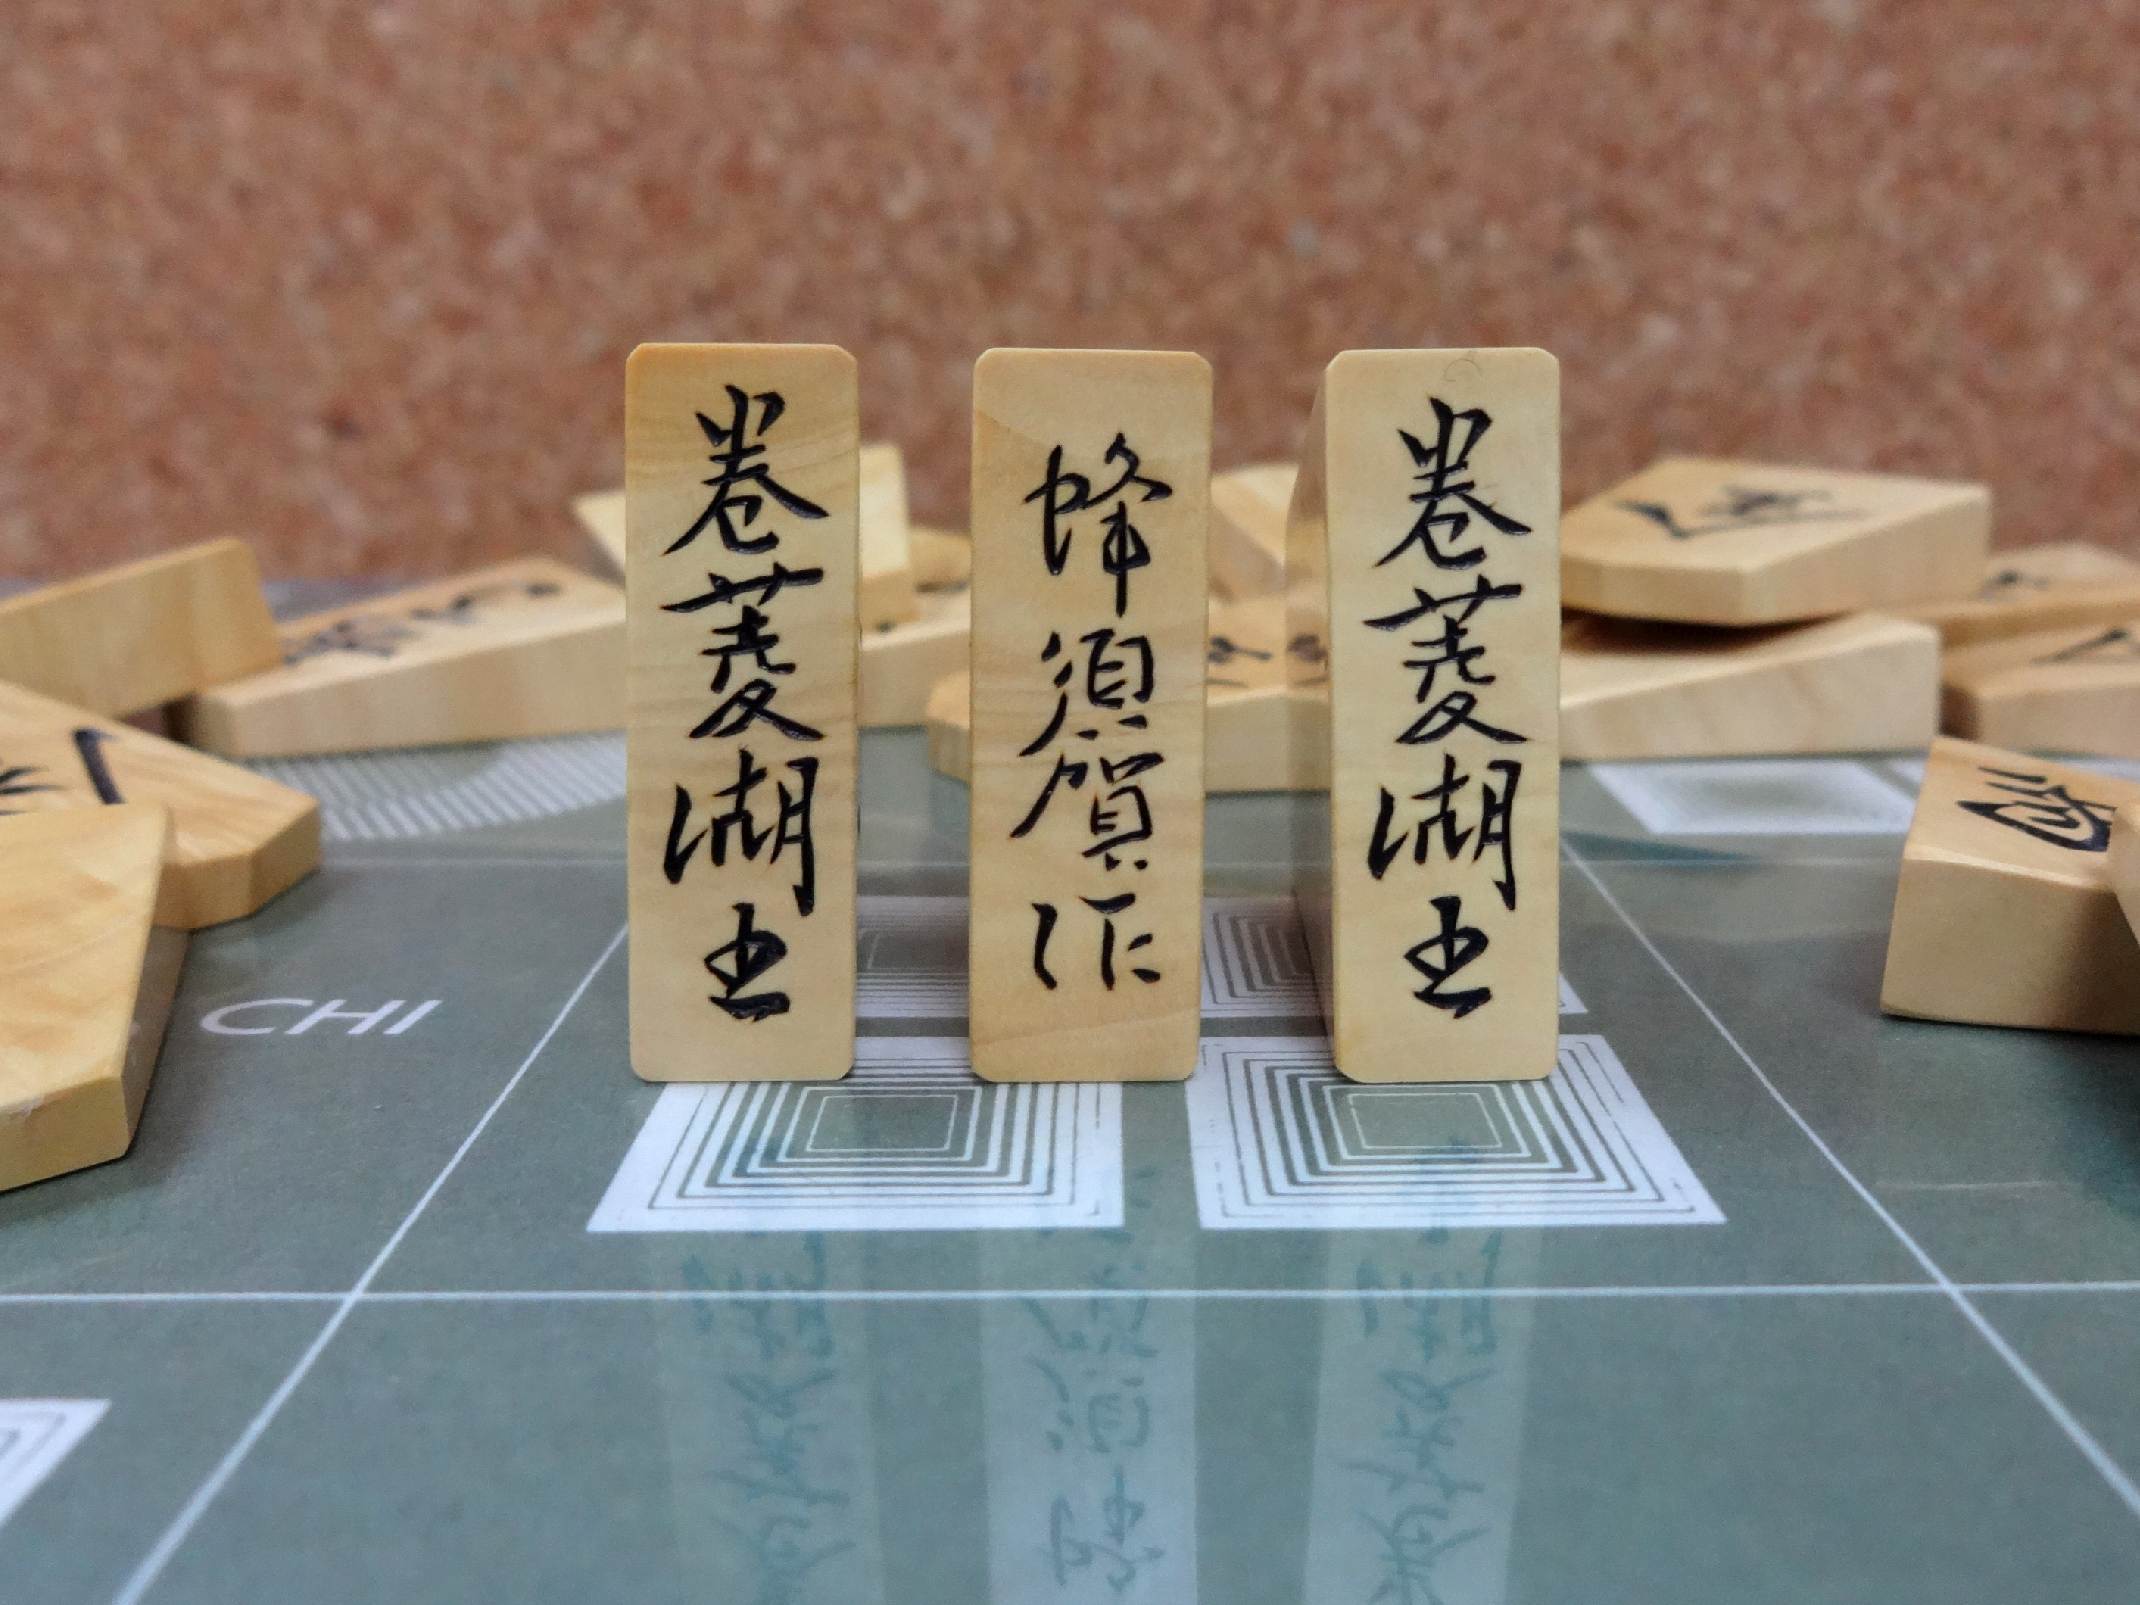 巻菱湖書
蜂須賀作
巻菱湖書
CHI